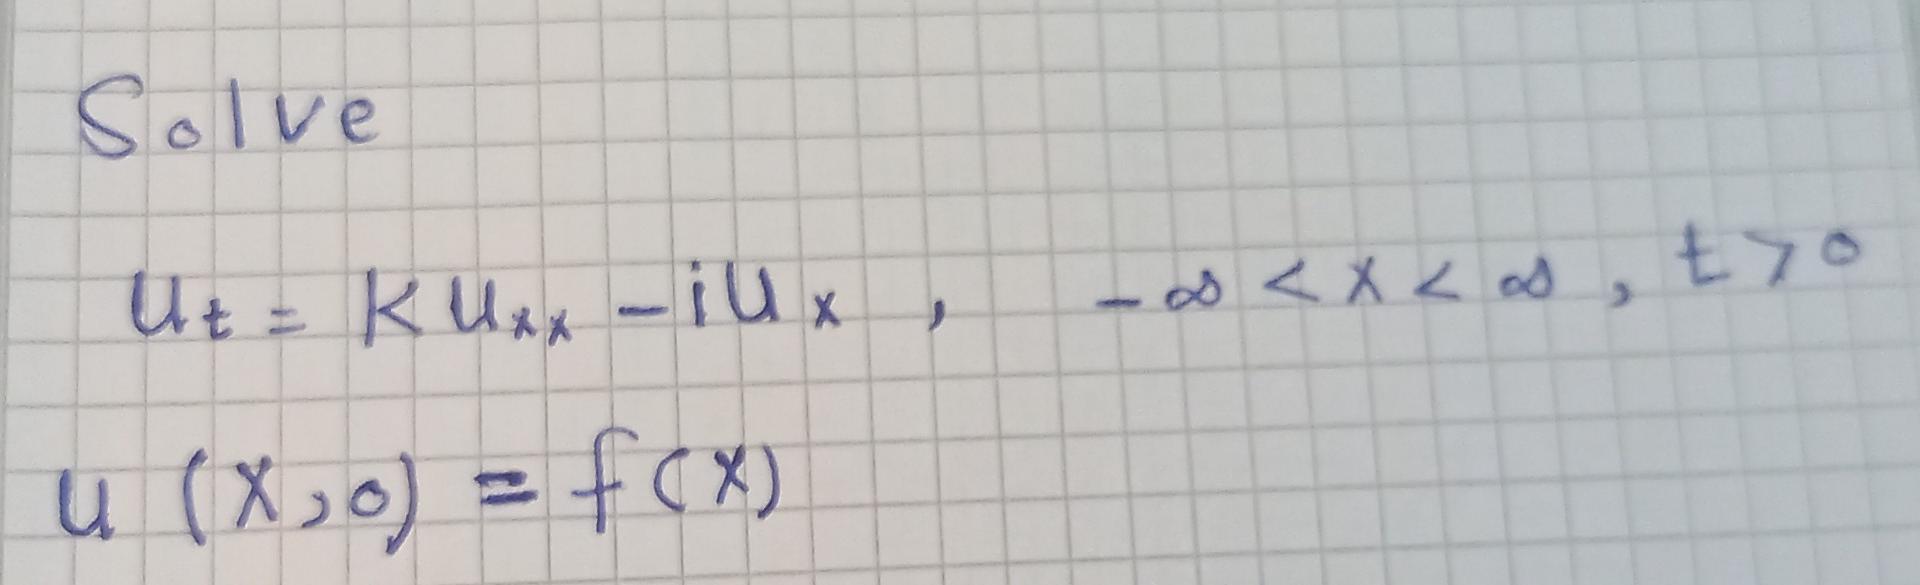 Solve
u_t = K u_xx - i u_x , -∞ < x < ∞ , t > 0
u (x, 0) = f(x)